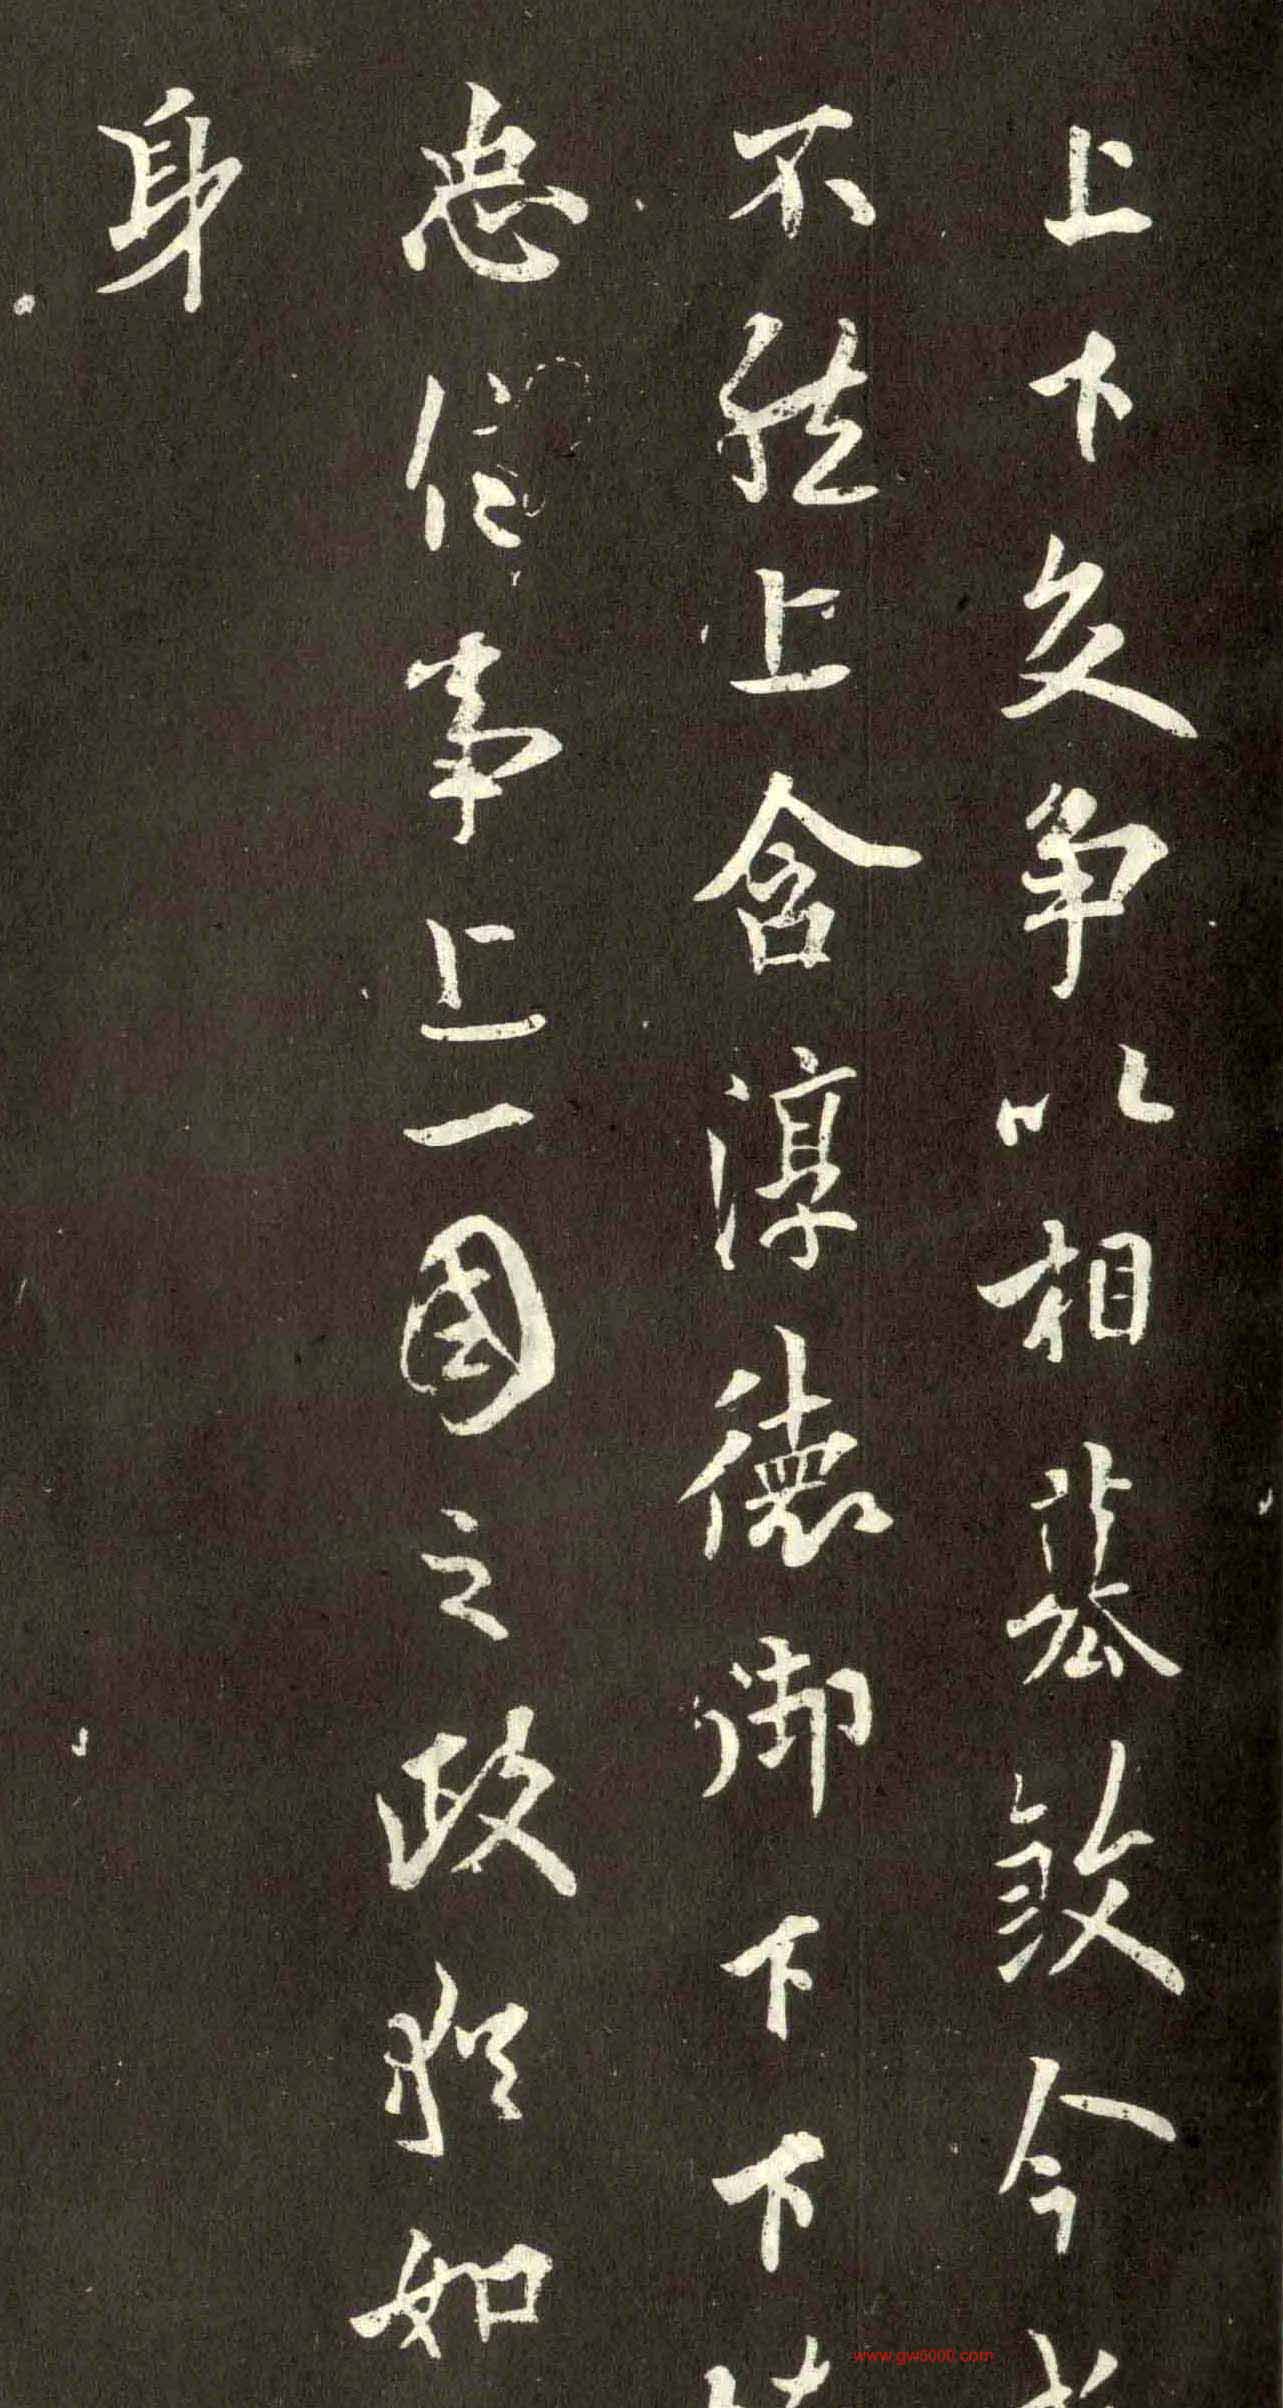 上下交爭以相纂弑今戎
不然上含淳德御下下懷
忠信事上一國之政猶如
身
www.gw5000.com